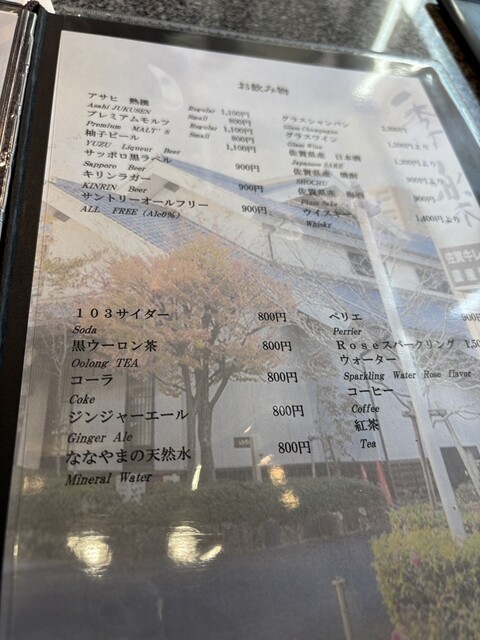 お飲み物
アサヒ 熟撰
Asahi JUKUSEN Regular 1,100円
プレミアムモルツ Small 800円
Premium MALT'S Regular 1,100円
柚子ビール Small 800円
YUZU Liqueur Beer 1,100円
サッポロ黒ラベル
Sapporo Beer 900円
キリンラガー
KINRIN Beer 900円
サントリーオールフリー
ALL FREE (Alc0%) 900円
グラスシャンパン
Glass Champagne
グラスワイン
Glass Wine 1,200円より
佐賀県産 日本酒
Japanese SAKE 1,200円より
佐賀県産 焼酎
SHOCHU 900円より
佐賀県産 梅酒
Plum Sake 900円
ウイスキー
Whisky 1,400円より
103サイダー 800円
Soda
黒ウーロン茶 800円
Oolong TEA
コーラ 800円
Coke
ジンジャーエール 800円
Ginger Ale
ななやまの天然水 800円
Mineral Water
ペリエ 900
Perrier
Roseスパークリング
ウォーター
Sparkling Water Rose flavor
コーヒー
Coffee
紅茶
Tea